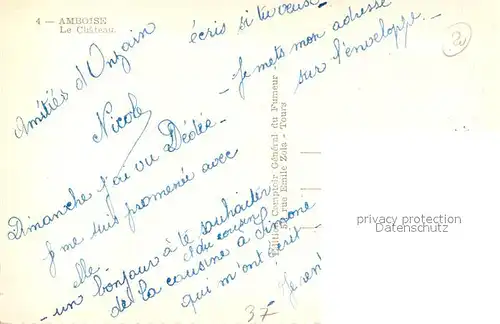 4 — AMBOISE
Le Château.
Amitiés d'Onzain
Nicole
écris si tu veux.
- Je mets mon adresse
sur l'enveloppe. -
Dimanche j'ai vu Dédée -
Je me suis promenée avec
elle
- un bonjour à te souhaiter
et du cousin
de la cousine à Simone
qui m'ont écrit
Je
Comptoir Général du Fumeur
rue Emile Zola - Tours
privacy protection
Datenschutz
37